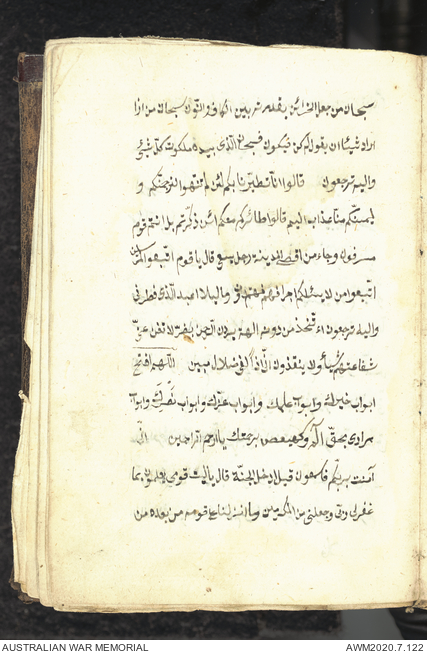 سبحان من جعل الخزائن بقدرته بين الكاف والنون سبحان من اذا
اراد شيئا ان يقول له كن فيكون فسبحان الذي بيده ملكوت كل شئ
واليه ترجعون قالوا انا تطيرنا بكم لئن لم تنتهوا لنرجمنكم و
ليمسنكم منا عذاب اليم قالوا طائركم معكم ائن ذكرتم بل انتم قوم
مسرفون وجاء من اقصى المدينة رجل يسعى قال يا قوم اتبعوا المرسلين
اتبعوا من لا يسئلكم اجرا وهم مهتدون ومالي لا اعبد الذي فطرني
واليه ترجعون ءاتخذ من دونه الهة ان يردن الرحمن بضر لا تغن عني
شفاعتهم شيأ ولا ينقذون اني اذا لفي ضلال مبين اللهم افتح
ابواب خيرك وابواب علمك وابواب عزك وابواب نصرك وابواب
مرادي بحق الم وكهيعص برحمتك يا ارحم الراحمين انى
آمنت بربكم فاسمعون قيل ادخل الجنة قال يا ليت قومي يعلمون بما
غفرلي ربي وجعلني من المكرمين وما انزلنا على قومه من بعده من
AUSTRALIAN WAR MEMORIAL
AWM2020.7.122